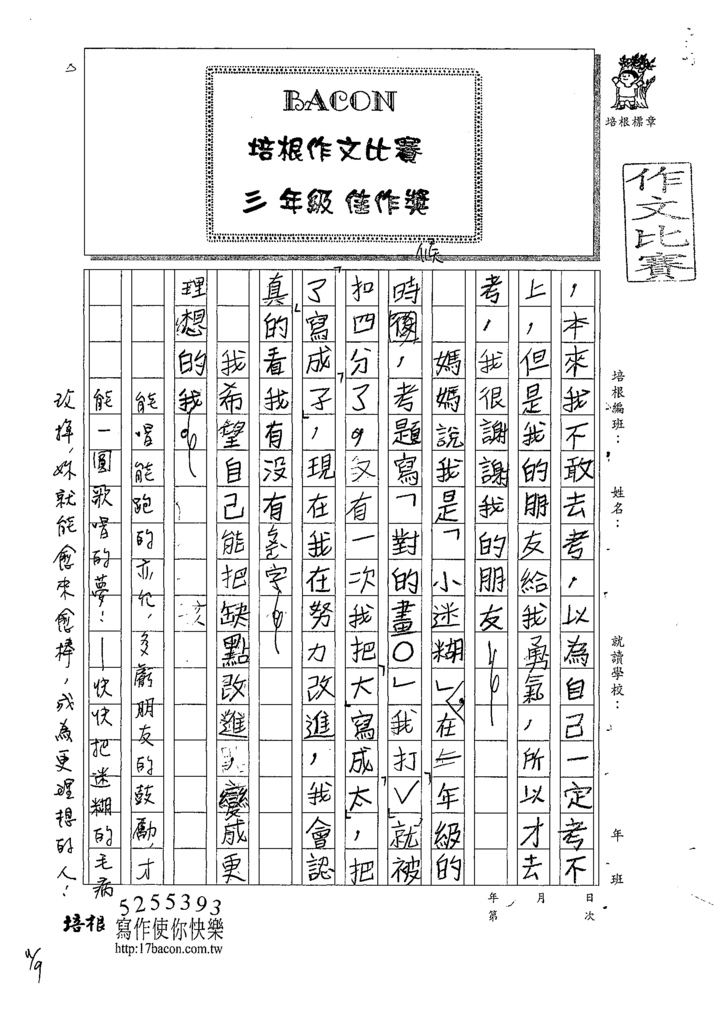 BACON
培根作文比賽
三年級 佳作獎
培根標章
作文比賽
培根編班：
姓名：
就讀學校：
年 班
，本來我不敢去考，以為自己一定考不
上，但是我的朋友給我勇氣，所以才去
考，我很謝謝我的朋友。
媽媽說我是「小迷糊」，在三年級的
時候，考題寫「對的畫○」我打「✓」就被
扣四分了。又有一次我把「大」寫成太，把
「了」寫成「子」，現在我在努力改進，我會認
真的看我有沒有寫錯字。
我希望自己能把缺點改進，變成更
理想的我。
候
能唱能跑的亦允，多虧朋友的鼓勵，才
能一圓歌唱的夢！—快快把迷糊的毛病
改掉，妳就能愈來愈棒，成為更理想的人！
年 月 日
第 次
培根
5255393
寫作使你快樂
http:17bacon.com.tw